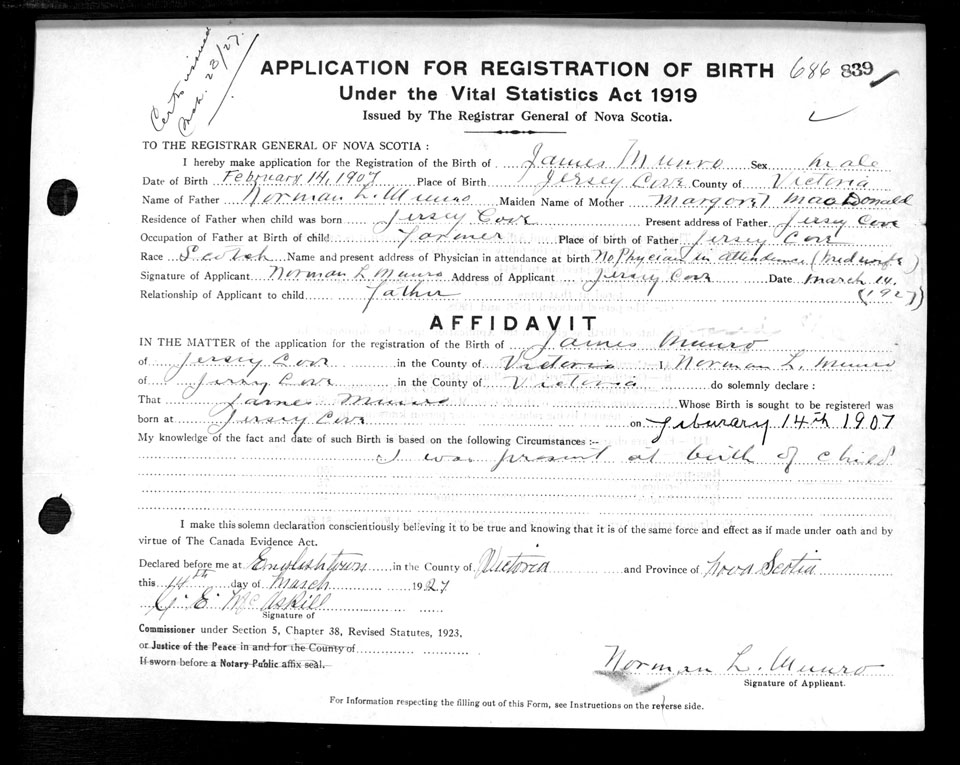 Certs issued
Mch. 28/27.
APPLICATION FOR REGISTRATION OF BIRTH 686 839
Under the Vital Statistics Act 1919
Issued by The Registrar General of Nova Scotia.
TO THE REGISTRAR GENERAL OF NOVA SCOTIA :
I hereby make application for the Registration of the Birth of James Munro Sex male
Date of Birth February 14, 1907 Place of Birth Jersey Cove County of Victoria
Name of Father Norman L. Munro Maiden Name of Mother Margaret MacDonald
Residence of Father when child was born Jersey Cove Present address of Father Jersey Cove
Occupation of Father at Birth of child Farmer Place of birth of Father Jersey Cove
Race Scotch Name and present address of Physician in attendance at birth No Physician in attendance (Midwife)
Signature of Applicant Norman L Munro Address of Applicant Jersey Cove Date March 14.
Relationship of Applicant to child Father (1927)
AFFIDAVIT
IN THE MATTER of the application for the registration of the Birth of James Munro
of Jersey Cove in the County of Victoria I, Norman L. Munro
of Jersey Cove in the County of Victoria do solemnly declare :
That James Munro Whose Birth is sought to be registered was
born at Jersey Cove on Feburary 14th 1907
My knowledge of the fact and date of such Birth is based on the following Circumstances :–
I was present at birth of child
I make this solemn declaration conscientiously believing it to be true and knowing that it is of the same force and effect as if made under oath and by
virtue of The Canada Evidence Act.
Declared before me at Englishtown in the County of Victoria and Province of Nova Scotia
this 14th day of March 1927
E. McAskill
Signature of
Commissioner under Section 5, Chapter 38, Revised Statutes, 1923,
or Justice of the Peace in and for the County of
If sworn before a Notary Public affix seal.
Norman L. Munro
Signature of Applicant.
For Information respecting the filling out of this Form, see Instructions on the reverse side.